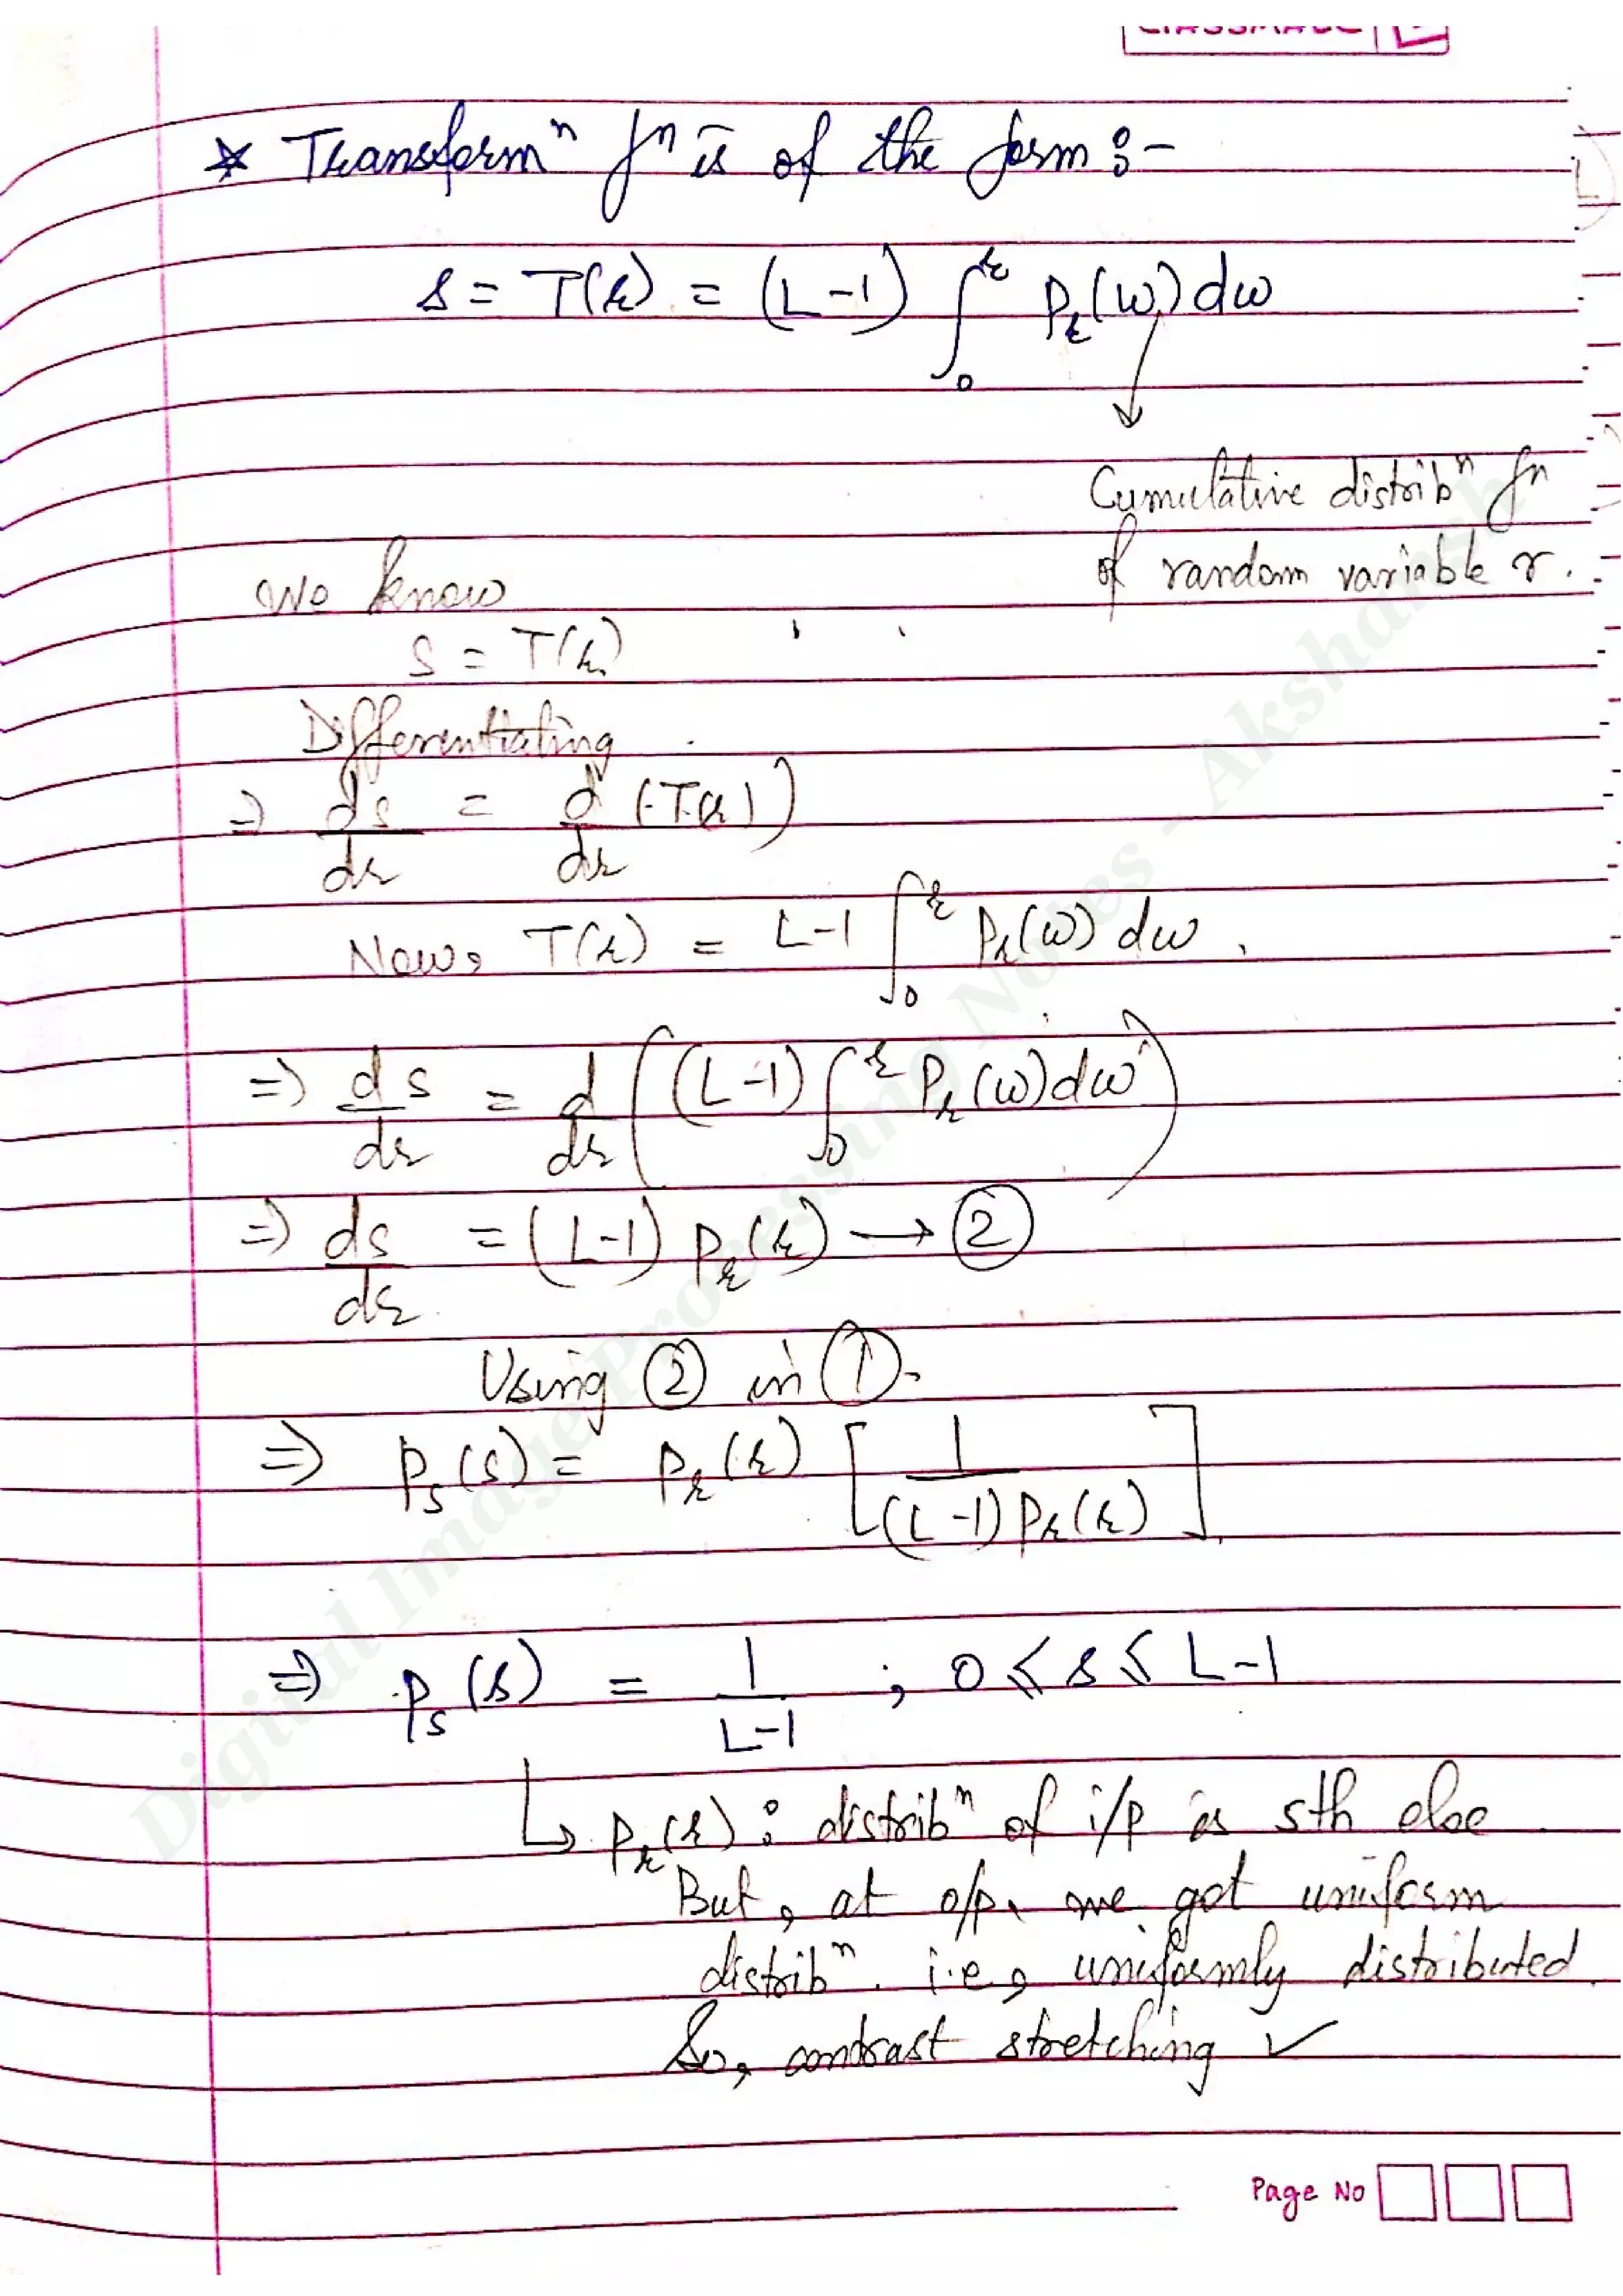 classmate
* Transformⁿ fⁿ is of the form :-
s = T(r) = (L-1) ∫₀ʳ Pr(w) dw
Cumulative distribⁿ fn
of random variable r.
We know
s = T(r)
Differentiating
⇒ ds/dr = d/dr (T(r))
Now, T(r) = L-1 ∫₀ʳ Pr(w) dw.
⇒ ds/dr = d/dr ((L-1) ∫₀ʳ Pr(w) dw)
⇒ ds/dr = (L-1) Pr(r) → ②
Using ② in ①.
⇒ Ps(s) = Pr(r) [1/((L-1) Pr(r))]
⇒ Ps(s) = 1/(L-1) ; 0 ≤ s ≤ L-1
↳ Pr(r) : distribⁿ of i/p is sth else
But, at o/p, we got uniform
distribⁿ. i.e., uniformly distributed.
So, contrast stretching ✓
Page No
Digital Image Processing Notes - Akshansh